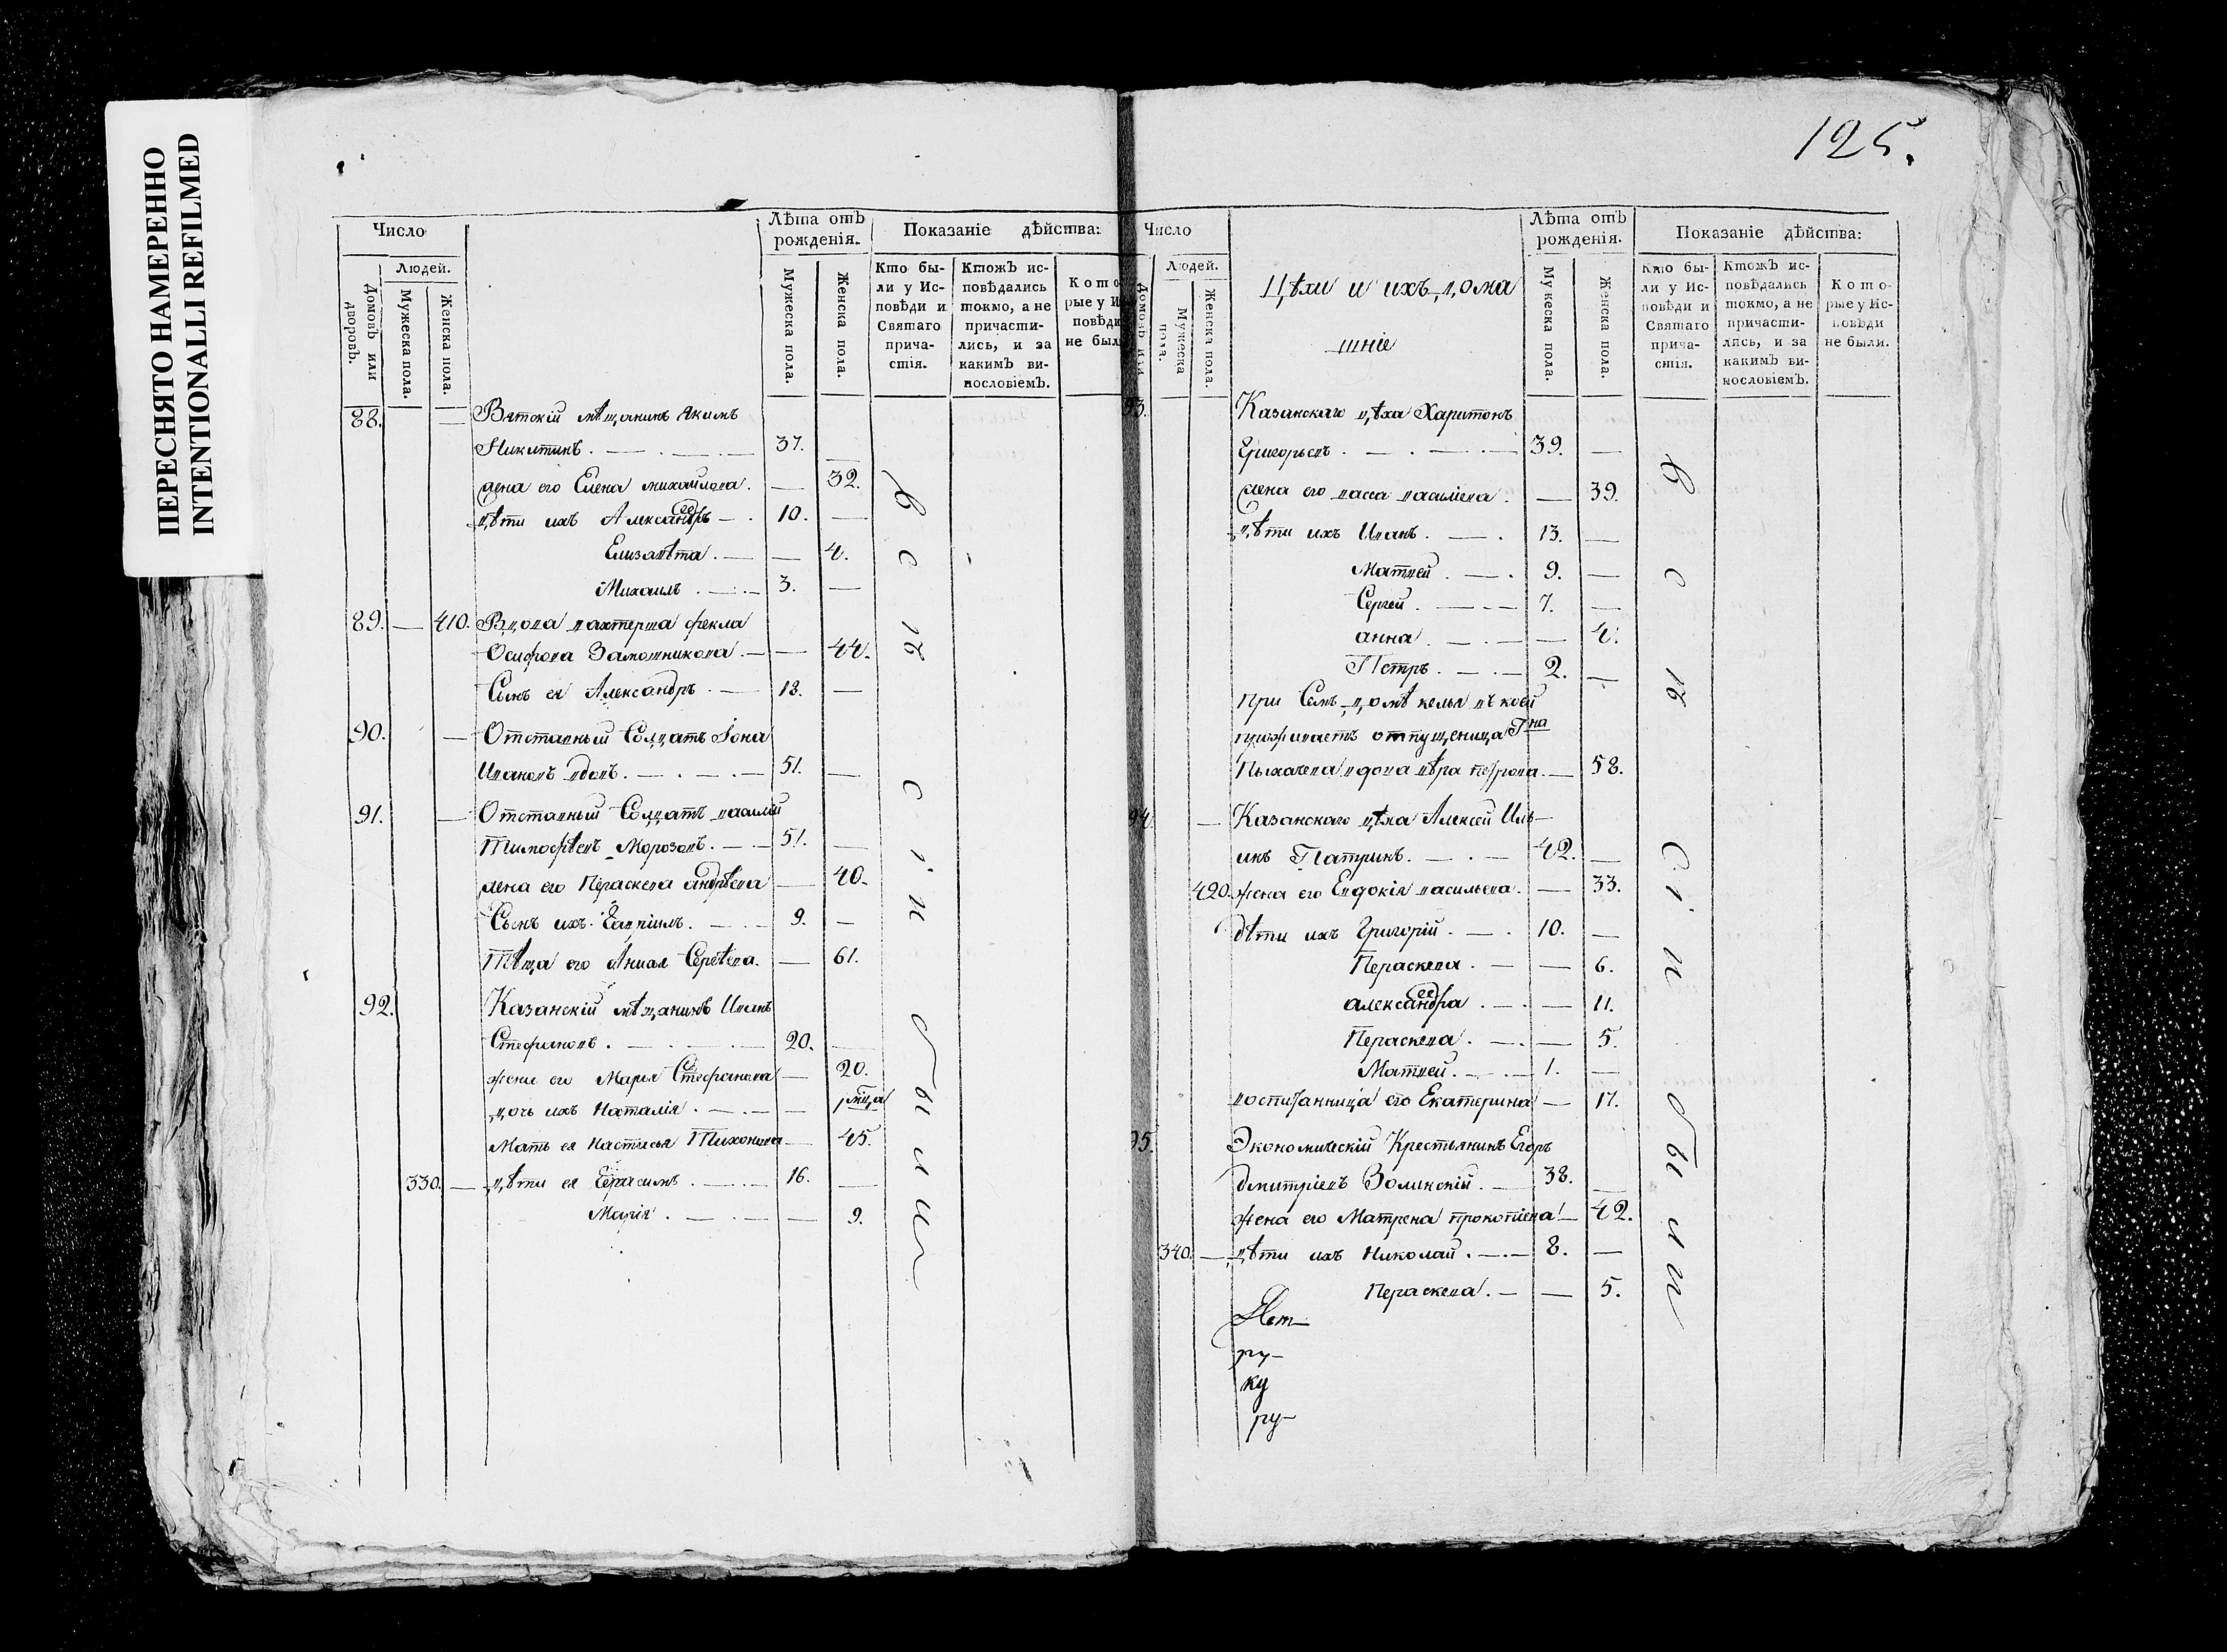 ПЕРЕСНЯТО НАМЕРЕННО
INTENTIONALLI REFILMED
125.
Число
Людей.
Домовъ или дворовъ.
Мужеска пола.
Женска пола.
Лѣта отъ рожденія.
Мужеска пола.
Женска пола.
Показаніе дѣйства:
Кто были у Исповѣди и Святаго причастія.
Ктожъ исповѣдались токмо, а не причастились, и за какимъ винословіемъ.
Которые у Исповѣди не были.
88. — Вятскій мѣщанинъ Якимъ
Никитинъ. — 37. —
жена его Елена михайлова. — 32.
дѣти ихъ Александръ — 10. —
Елизавѣта. — — 4.
Михаилъ. — 3. —
89. — 410. Вдова вахтерша фекла
Осифова Замошникова. — — 44.
Сынъ ея Александръ. — 18. —
90. — Отставный Солдатъ Iона
Ивановъ вдовъ. — 51. —
91. — Отставный Солдатъ василій
Тимофѣевъ Морозовъ. — 51. —
жена его Пераскева андрѣева — 40.
Сынъ ихъ Гавріилъ. — 9. —
Тѣща его Анна Сергѣева. — 61.
92. Казанскій мѣщанинъ Иванъ
Стефановъ. — 20. —
жена его Марья Стефанова — 20.
дочь ихъ Наталія. — —
Мать ея Настасья Тихонова — 45.
330. — дѣти ея Герасимъ. — 16. —
Марія. — — 9.
всѣ сіи были
Число
Людей.
Домовъ или
Мужеска пола.
Женска пола.
Цѣхи и ихъ дома
шніе
Лѣта отъ рожденія.
Мужеска пола.
Женска пола.
Показаніе дѣйства:
Кто были у Исповѣди и Святаго причастія.
Ктожъ исповѣдались токмо, а не причастились, и за какимъ винословіемъ.
Которые у Исповѣди не были.
93. Казанскаго цѣха Харитонъ
Григорьевъ. — 39. —
жена его васса василіева. — 39.
дѣти ихъ Иванъ. — 13. —
Матвей. — 9. —
Сергей. — 7. —
анна. — — 4.
Петръ. — 2. —
При Семъ домѣ келья въ коей
проживаетъ отпущеница Гна
Пыхачева вдова вѣра петрова. — 58.
94. — Казанскаго цѣха Алексей Иль—
инъ Патринъ. — 42. —
420. жена его Евдокія васильева. — 33.
дѣти ихъ Григорій. — 10. —
Пераскева. — — 6.
александра. — — 11.
Пераскева. — — 5.
Матвей. — 1. —
воспитанница его Екатерина — 17.
95. Экономическій Крестьянинъ Егоръ
дмитріевъ Золинскій. — 38. —
жена его Матрена прокопіева — 42.
340. — дѣти ихъ Николай. — 8. —
Пераскева. — — 5.
ру—
ку
ру—
всѣ Сіи были